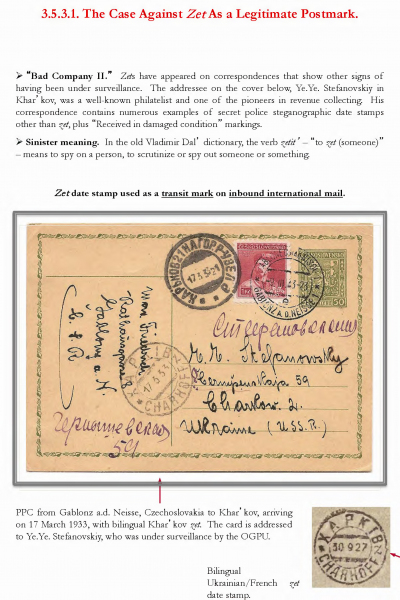 3.5.3.1. The Case Against Zet As a Legitimate Postmark.
➢ “Bad Company II.” Zets have appeared on correspondences that show other signs of
having been under surveillance. The addressee on the cover below, Ye.Ye. Stefanovskiy in
Khar’kov, was a well-known philatelist and one of the pioneers in revenue collecting. His
correspondence contains numerous examples of secret police steganographic date stamps
other than zet, plus “Received in damaged condition” markings.
➢ Sinister meaning. In the old Vladimir Dal’ dictionary, the verb zetit’ – “to zet (someone)”
– means to spy on a person, to scrutinize or spy out someone or something.
Zet date stamp used as a transit mark on inbound international mail.
17.3.33
50
Стефановский
Max Friedrich
Gablonz a. N.
Č.S.R.
ХАРКІВ
17 3 33
CHARKOFF
M. M. Stefanowsky
59
Charkow 2.
Ukraine (USS.R.)
Чернышевская
59
PPC from Gablonz a.d. Neisse, Czechoslovakia to Khar’kov, arriving
on 17 March 1933, with bilingual Khar’kov zet. The card is addressed
to Ye.Ye. Stefanovskiy, who was under surveillance by the OGPU.
ХАРКІВ
30 9 27
CHARKOFF
Bilingual
Ukrainian/French zet
date stamp.